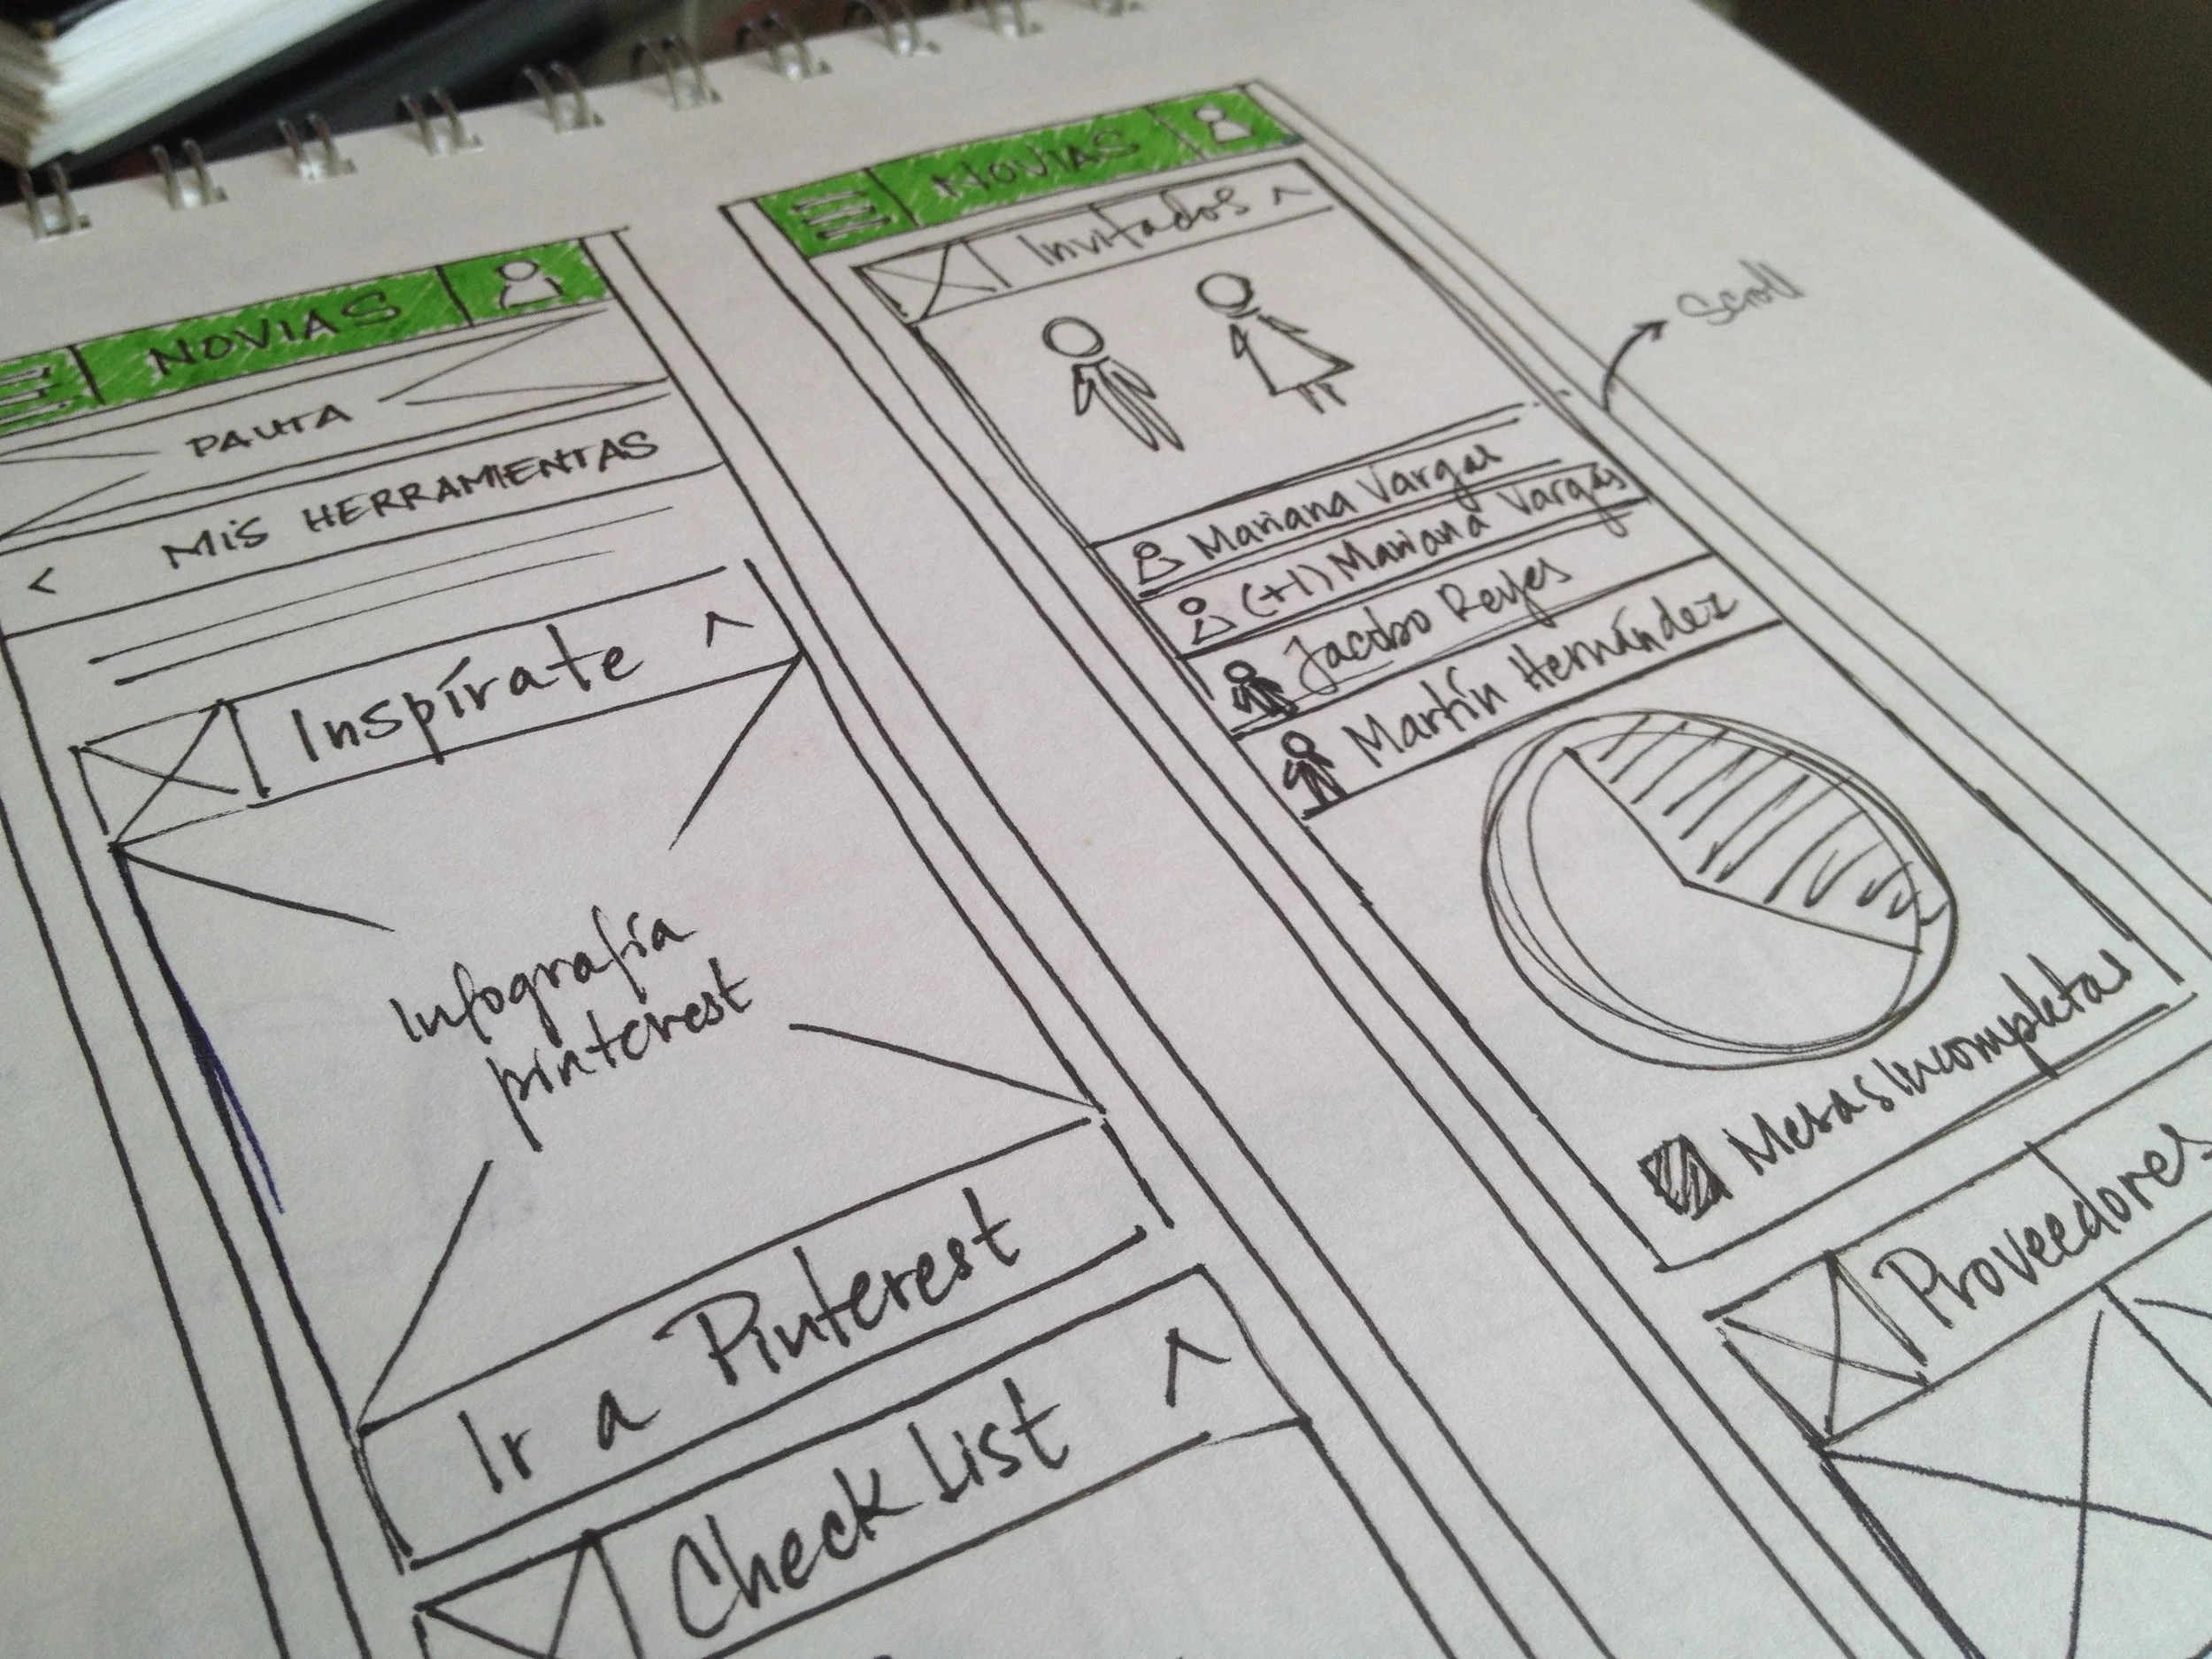 NOVIAS
PAUTA
< MIS HERRAMIENTAS
Inspírate ^
Infografía
pinterest
Ir a Pinterest
Check List ^
NOVIAS
Invitados ^
Scroll
Mariana Vargas
(+1) Mariana Vargas
Jacobo Reyes
Martín Hernández
Mesas Incompletas
Proveedores